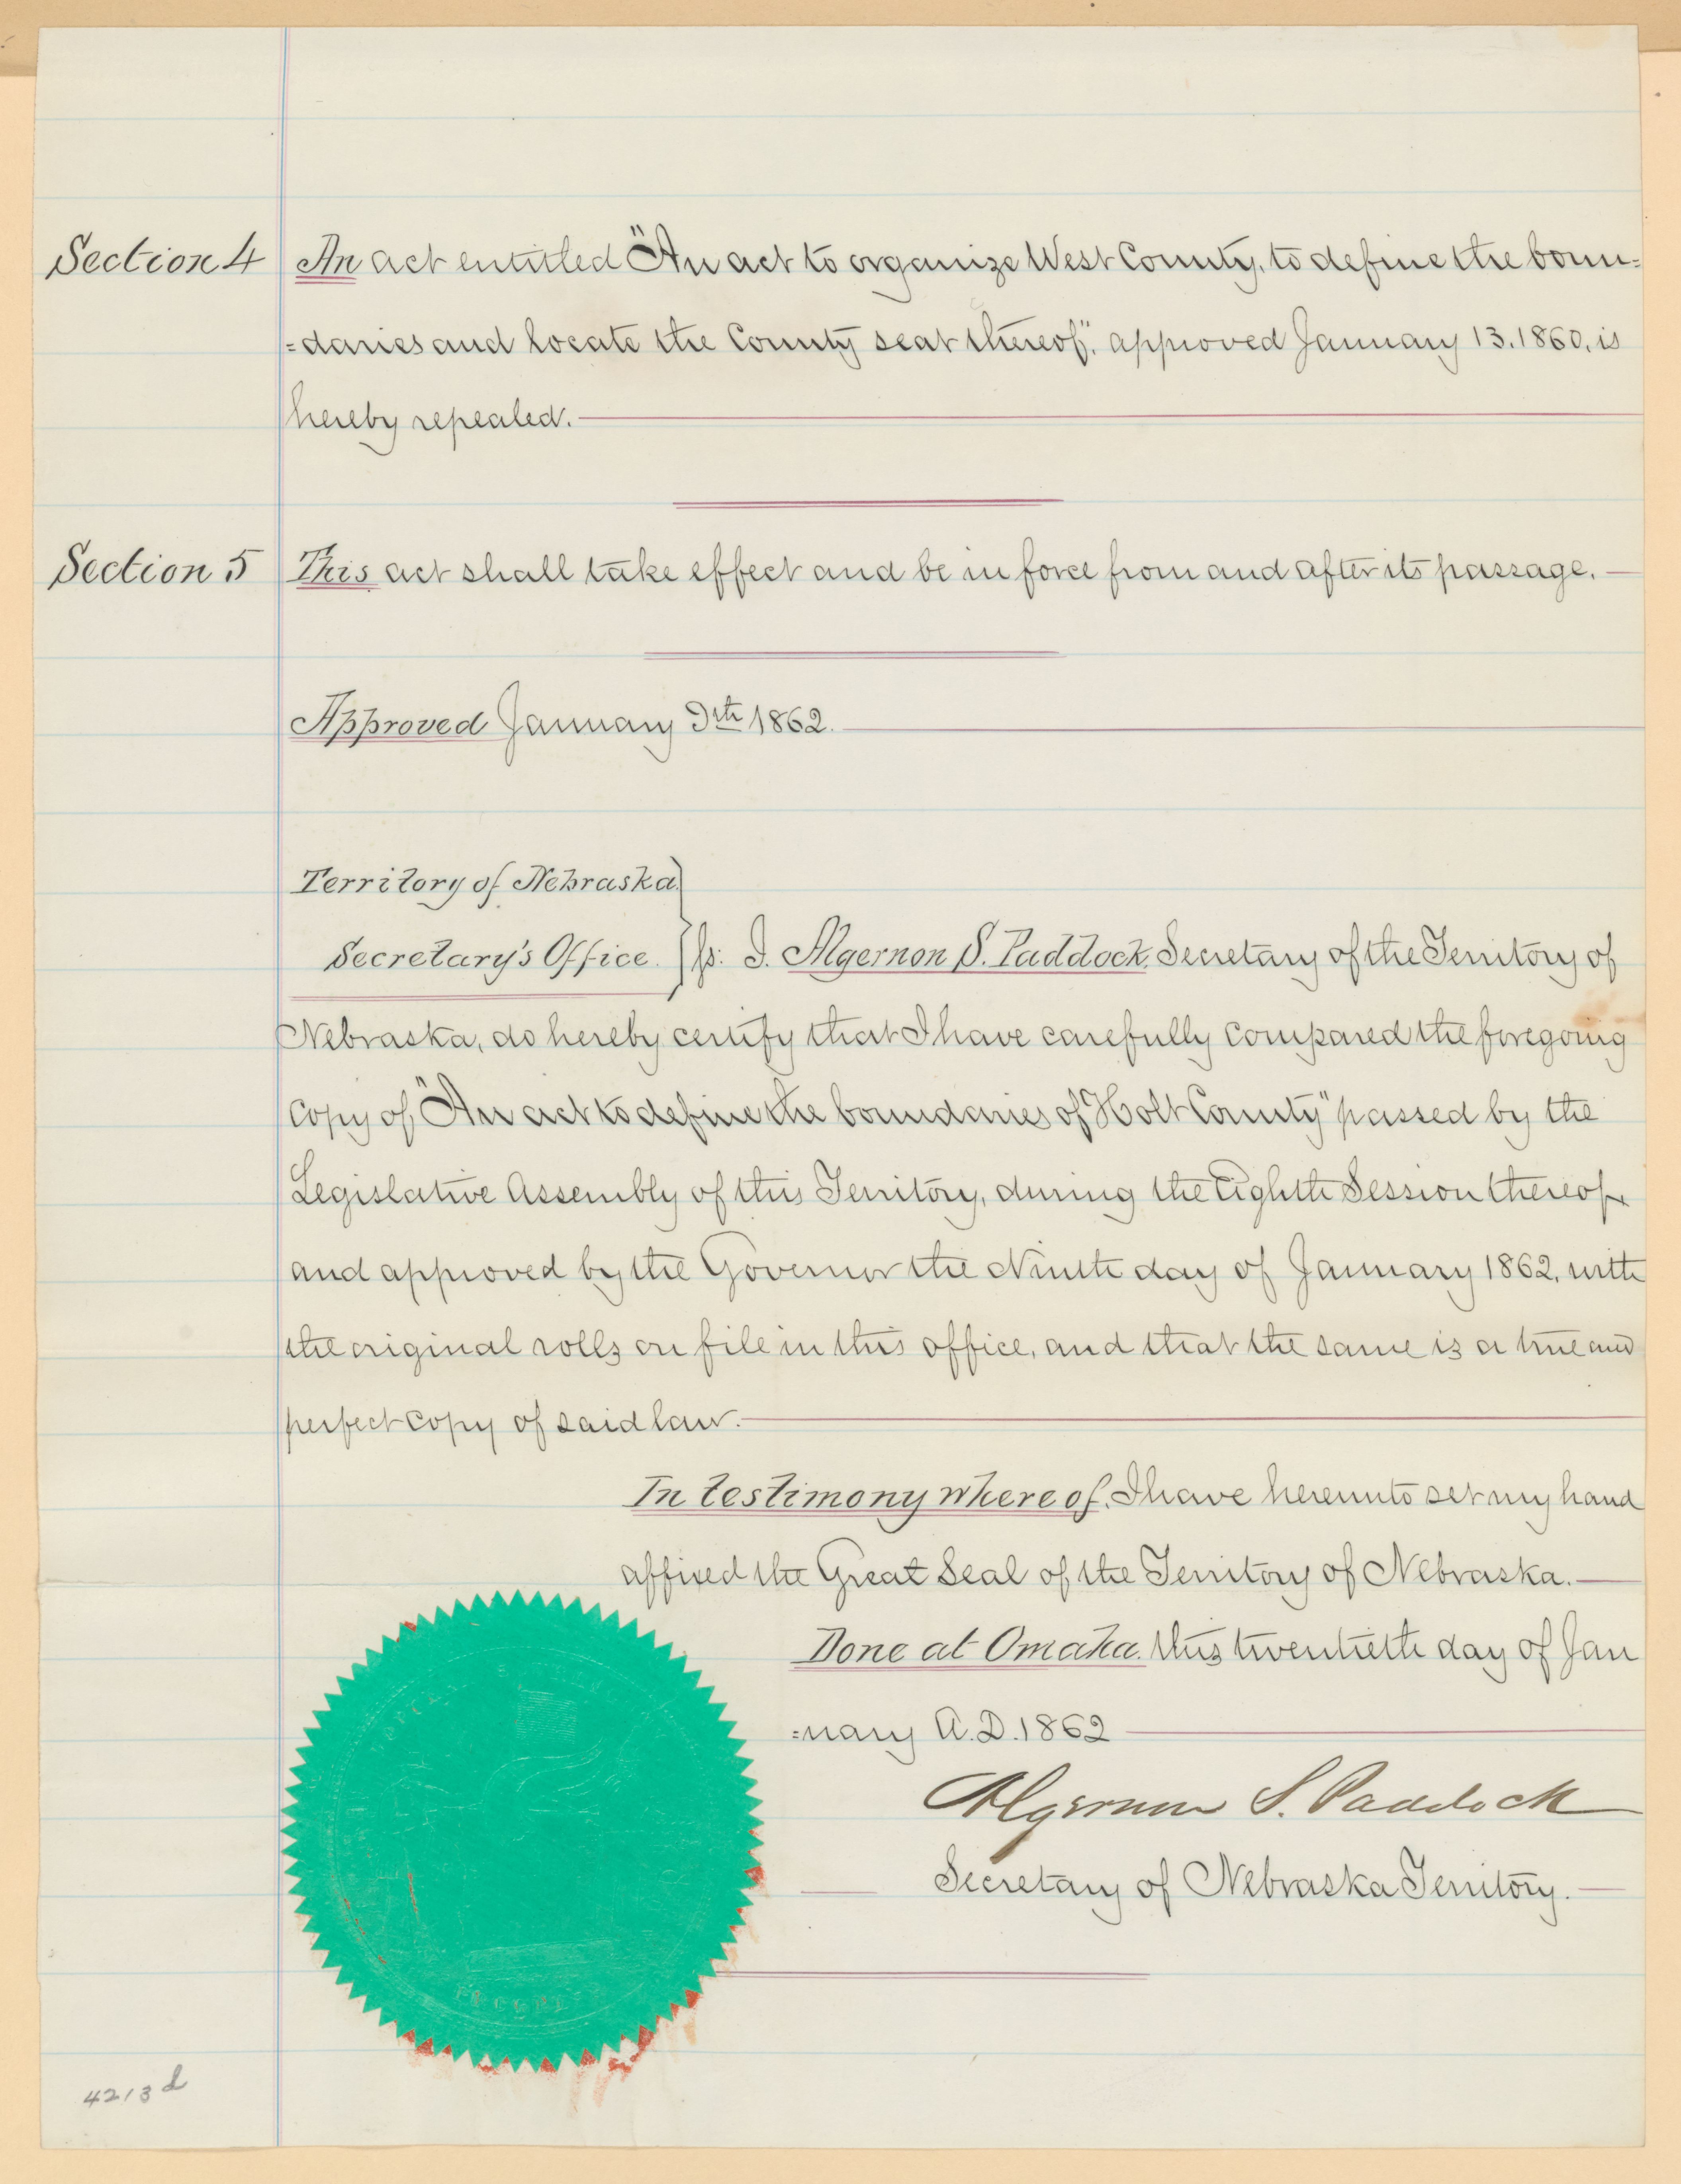 Section 4 An act entitled "An act to organize West County, to define the boun=
=daries and locate the County seat thereof," approved January 13. 1860, is
hereby repealed.
Section 5 This act shall take effect and be in force from and after its passage.
Approved January 9th 1862.
Territory of Nebraska
Secretary's Office. } ss: I. Algernon S. Paddock, Secretary of the Territory of
Nebraska, do hereby certify that I have carefully compared the foregoing
copy of "An act to define the boundaries of Holt County" passed by the
Legislative Assembly of this Territory, during the Eighth Session thereof
and approved by the Governor the Ninth day of January 1862, with
the original rolls on file in this office, and that the same is a true and
perfect copy of said law.
In testimony whereof, I have hereunto set my hand
affixed the Great Seal of the Territory of Nebraska.
Done at Omaha. this twentieth day of Jan
=uary A.D. 1862
Algernon S. Paddock
Secretary of Nebraska Territory.
4213 d